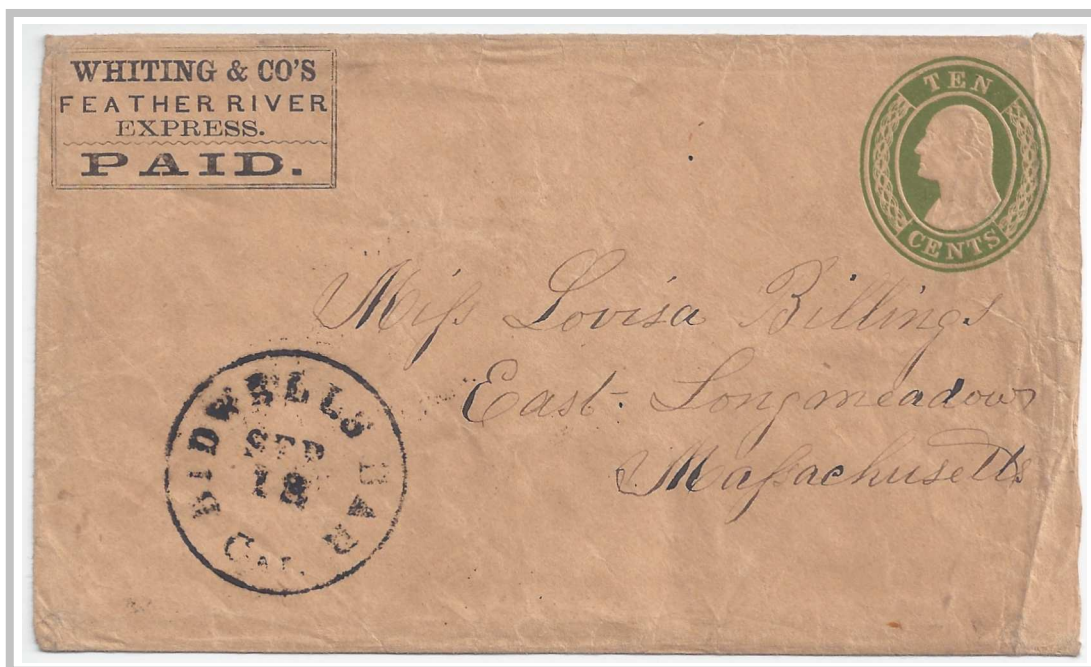 WHITING & CO'S
FEATHER RIVER
EXPRESS.
PAID.
TEN
CENTS
Miſs Lovisa Billings
East. Longmeadow
Maſsachusetts
BIDWELLS BAR
SEP
18
CAL.